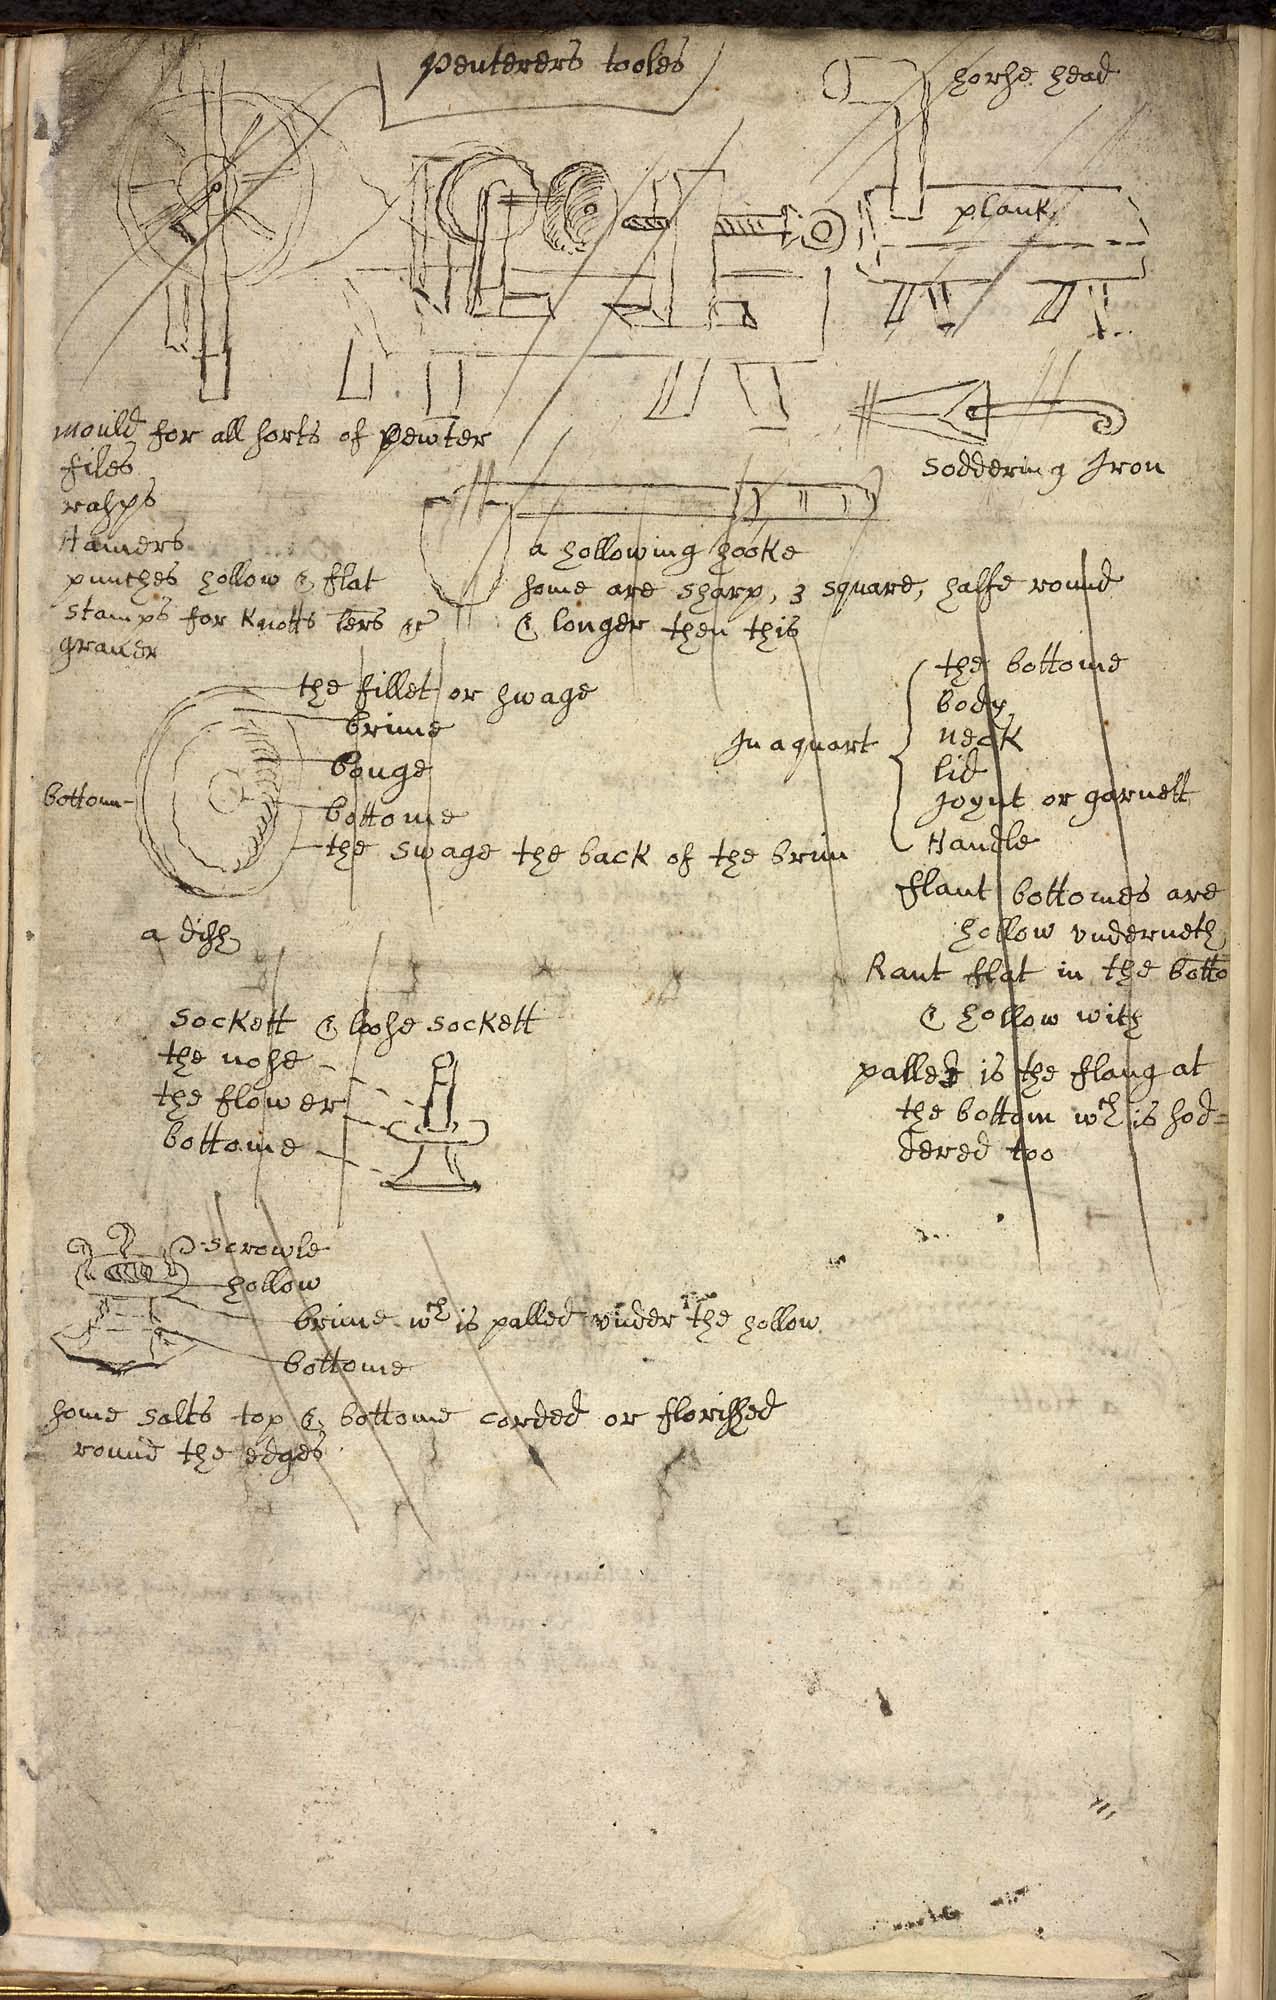 Peuterers tooles
horse head
plank
mould for all sorts of pewter
files
rasps
Hamers
punches hollow & flat
stamps for knotts lers &c
graver
Soddering Iron
a hollowing hooke
some are sharp, 3 square, halfe round
& longer then this
the fillet or swage
brime
bouge
bottome
the swage the back of the brim
bottom
a dish
In a quart
the bottome
body
neck
lid
Joynt or garnett
Handle
flant bottomes are
hollow underneth
Rant flat in the botto
& hollow with
palled is the flang at
the bottom wch is sod=
dered too
Sockett & loose sockett
the nose
the flower
bottome
scrowle
hollow
brime wch is palled under the hollow
bottome
some salts top & bottome corded or florished
round the edges